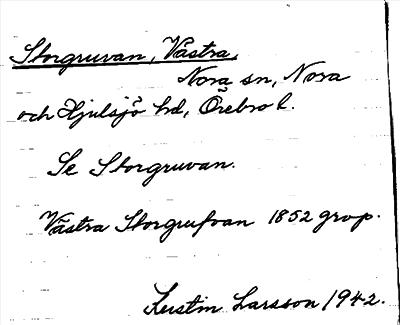 Storgruvan, Västra,
Nora sn, Nora
och Hjulsjö hd, Örebro l.
Se Storgruvan.
Västra Storgrufvan 1852 grvp.
Kerstin Larsson 1942.